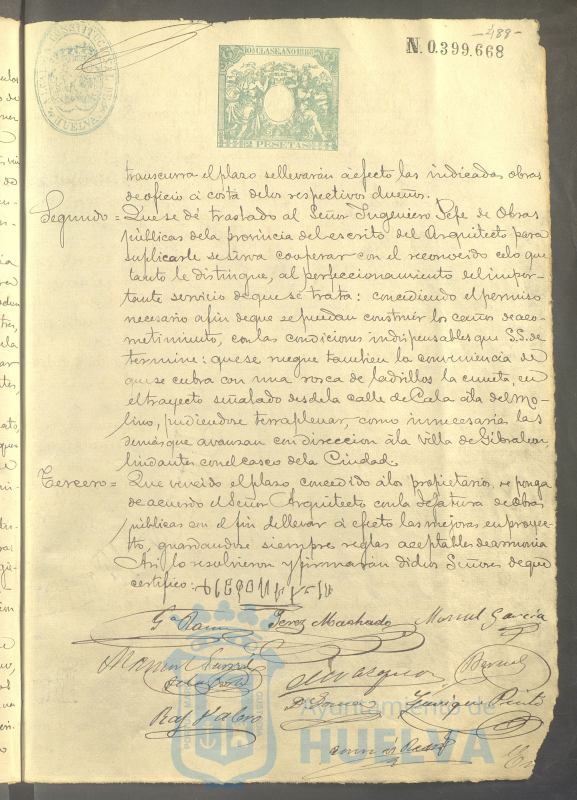 -488-
N. 0.399.668
10ª CLASE. AÑO 18
2 PESETAS
HUELVA
transcurra el plazo se llevarán á efecto las indicadas obras
de oficio á costa de los respectivos dueños.
Segundo = Que se dé traslado al Señor Ingeniero Jefe de Obras
públicas de la provincia del escrito del Arquitecto para
suplicarle se sirva cooperar con el reconocido celo que
tanto le distingue, al perfeccionamiento del impor-
tante servicio de que se trata: concediendo el permiso
necesario á fin de que se puedan construir los caños de aco-
metimiento, con las condiciones indispensables que S.S. de
termine: que se ruegue tambien la conveniencia de
que se cubra con una rosca de ladrillos la cuneta, en
el trayecto señalado desde la calle de Cala á la del Mo-
lino, pudiendose terraplenar, como innecesaria las
demás que avanzan con direccion á la Villa de Gibraleon,
lindantes con el casco de la Ciudad.
Tercero = Que vencido el plazo concedido á los propietarios, se ponga
de acuerdo el Señor Arquitecto con la Jefatura de Obras
públicas con el fin de llevar á efecto las mejoras en proyec-
to, guardandose siempre reglas aceptables de armonia
Asi lo resolvieron y firmarán dichos Señores de que
certifico:
Gª Ramos Perez Machado Manuel Garcia
Manuel
Vazquez
Bernal
Raf Valero
Enrique Pinto
Ayuntamiento de
HUELVA